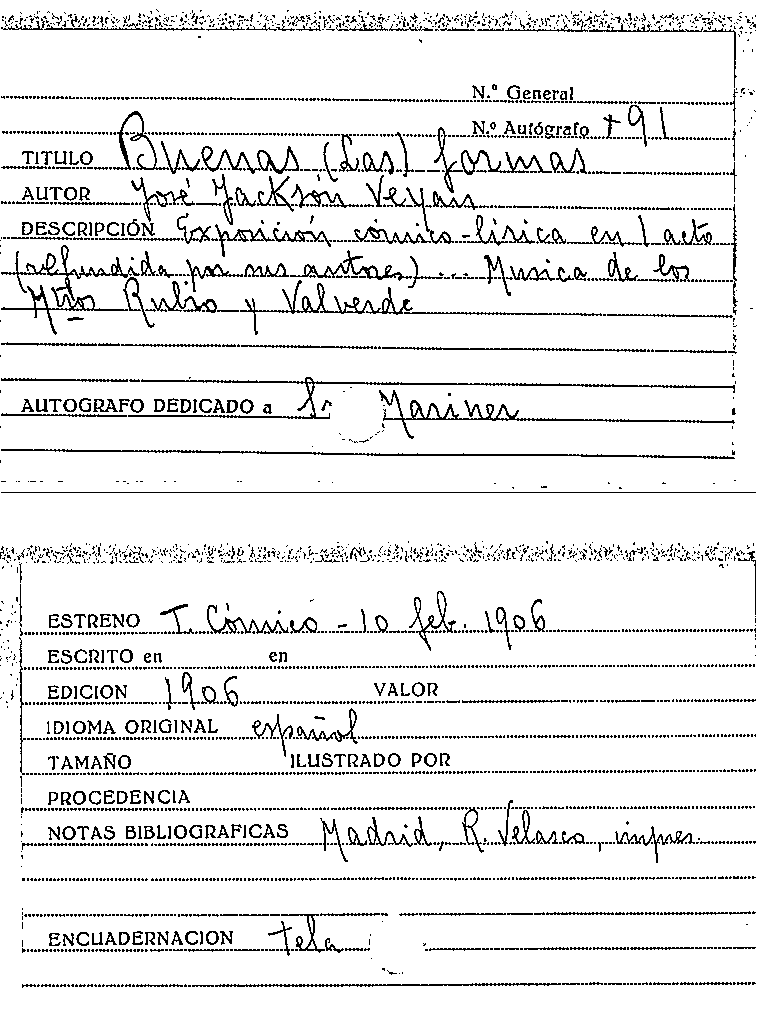 N.º General
N.º Autógrafo +91
TITULO Buenas (Las) formas
AUTOR José Jackson Veyan
DESCRIPCIÓN Exposición cómico-lírica en 1 acto
(refundida por sus autores)... Musica de los
Mtros Rubio y Valverde
AUTOGRAFO DEDICADO a Sr Mariner
ESTRENO T. Cómico - 10 feb. 1906
ESCRITO en en
EDICION 1906 VALOR
IDIOMA ORIGINAL español
TAMAÑO ILUSTRADO POR
PROCEDENCIA
NOTAS BIBLIOGRAFICAS Madrid, R. Velasco, impres.
ENCUADERNACION tela